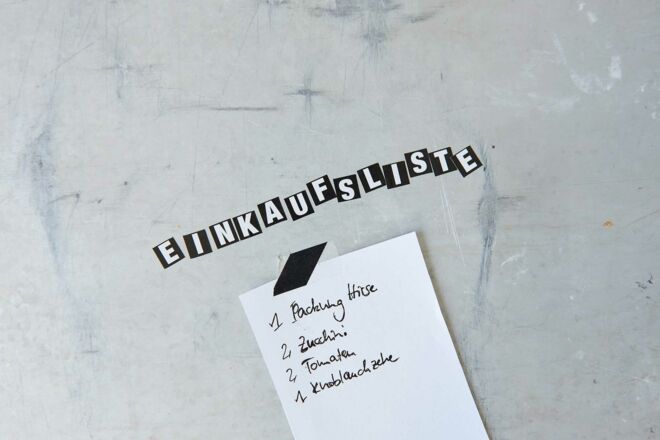 EINKAUFSLISTE
1 Packung Hirse
2 Zucchini
2 Tomaten
1 Knoblauchzehe